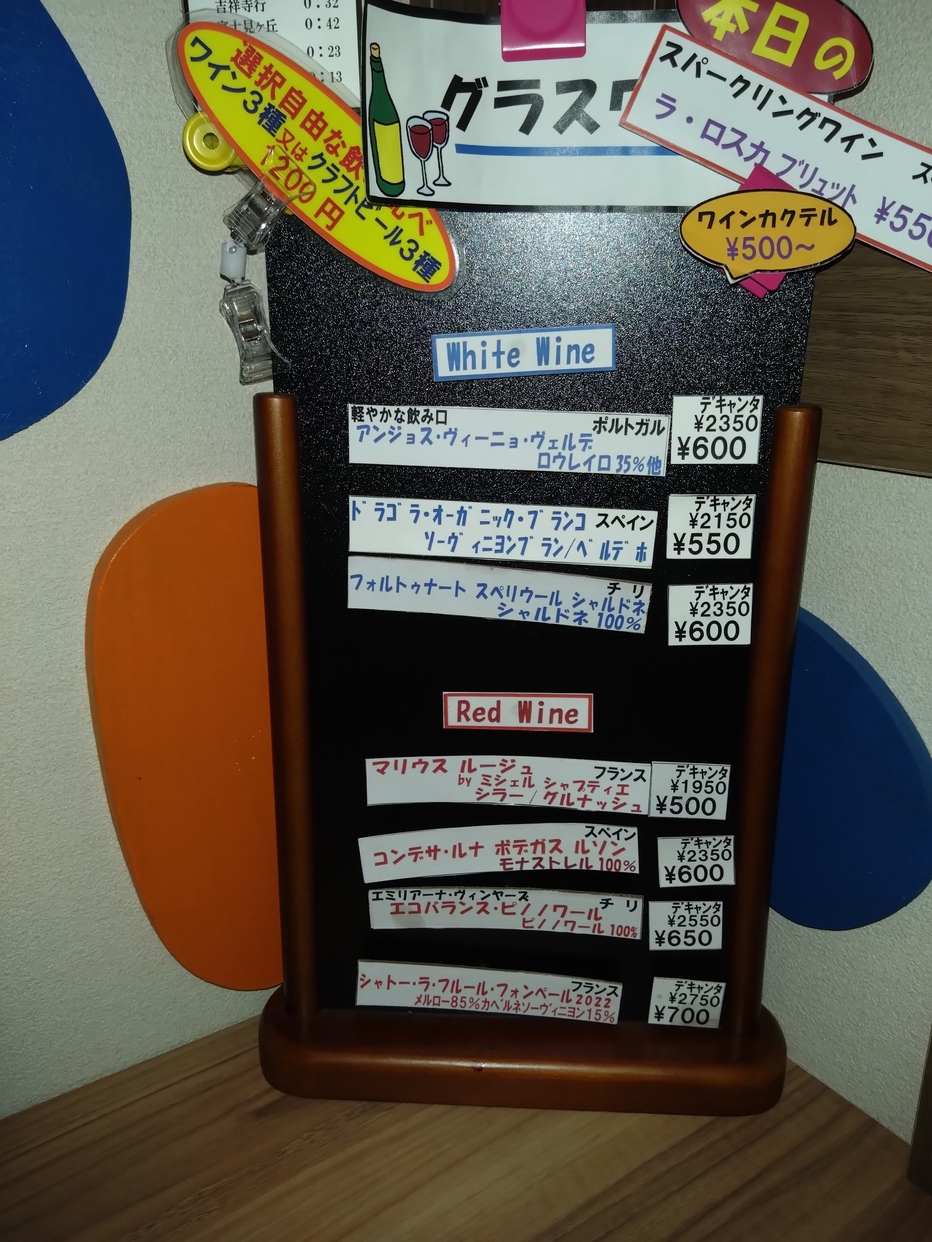 吉祥寺行 0:32
富士見ヶ丘 0:42
0:23
0:13
選択自由な飲
比べ
ワイン3種又はクラフトビール3種
1200円
グラスワ
本日の
スパークリングワイン
ラ・ロスカ ブリュット ¥550
ワインカクテル
¥500～
White Wine
軽やかな飲み口 ポルトガル
アンジョス・ヴィーニョ・ヴェルデ
ロウレイロ 35%他
デキャンタ
¥2350
¥600
ドラゴラ・オーガニック・ブランコ スペイン
ソーヴィニヨンブラン/ベルデホ
デキャンタ
¥2150
¥550
チリ
フォルトゥナート スペリウール シャルドネ
シャルドネ 100%
デキャンタ
¥2350
¥600
Red Wine
マリウス ルージュ フランス
by ミシェル シャプティエ
シラー/グルナッシュ
デキャンタ
¥1950
¥500
スペイン
コンデサ・ルナ ボデガス ルソン
モナストレル 100%
デキャンタ
¥2350
¥600
エミリアーナ・ヴィンヤーズ チリ
エコバランス・ピノノワール
ピノノワール 100%
デキャンタ
¥2550
¥650
フランス
シャトー・ラ・フルール・フォンペール2022
メルロー85%カベルネソーヴィニヨン15%
デキャンタ
¥2750
¥700